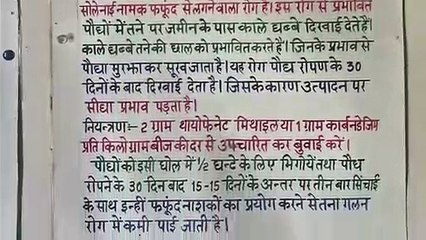 सोलेनाई नामक फफूंद से लगने वाला रोग है। इस रोग से प्रभावित
पौधों में तने पर जमीन के पास काले धब्बे दिखाई देते हैं।
काले धब्बे तने की छाल को प्रभावित करते हैं। जिनके प्रभाव से
पौधा मुरझा कर सूख जाता है। यह रोग पौध रोपण के 30
दिनों के बाद दिखाई देता है। जिसके कारण उत्पादन पर
सीधा प्रभाव पड़ता है।
नियन्त्रणः- 2 ग्राम थायोफेनेट मिथाइल या 1 ग्राम कार्बेन्डेजिम
प्रति किलो ग्राम बीज की दर से उपचारित कर बुवाई करें।
पौधों को इसी घोल में 1/2 घन्टे के लिए भिगोयें तथा पौध
रोपने के 30 दिन बाद 15-15 दिनों के अन्तर पर तीन बार सिंचाई
के साथ इन्हीं फफूंद नाशकों का प्रयोग करने से तना गलन
रोग में कमी पाई जाती है।